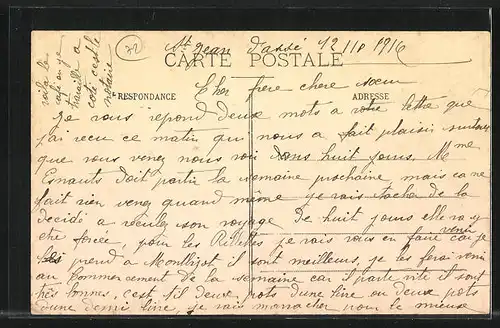 voila le
café ou je
travaille a
coté c'est le
notaire
72
St Jean d'assé 12 110 1916
CARTE POSTALE
Cher frere chere soeur
RESPONDANCE ADRESSE
Je vous répond deux mots a votre lettre que
j'ai recu ce matin qui nous a fait plaisir surtout
que vous venez nous voir dans huit jours. Mme
Esnauts doit partir la semaine prochaine mais ca ne
fait rien venez quand même je vais tacher de la
decidé a reculez son voyage De huit jours elle va y
etre forcée, pour les Rillettes je vais vous en faire venir car je
les prend a Montbizot il sont meilleurs, je les ferai venir
au commencement de la semaine car il parte vite il sont
très bonnes, c'est t'il deux pots d'une livre ou deux pots
d'une demi livre, je vais m'arracher pour le mieux